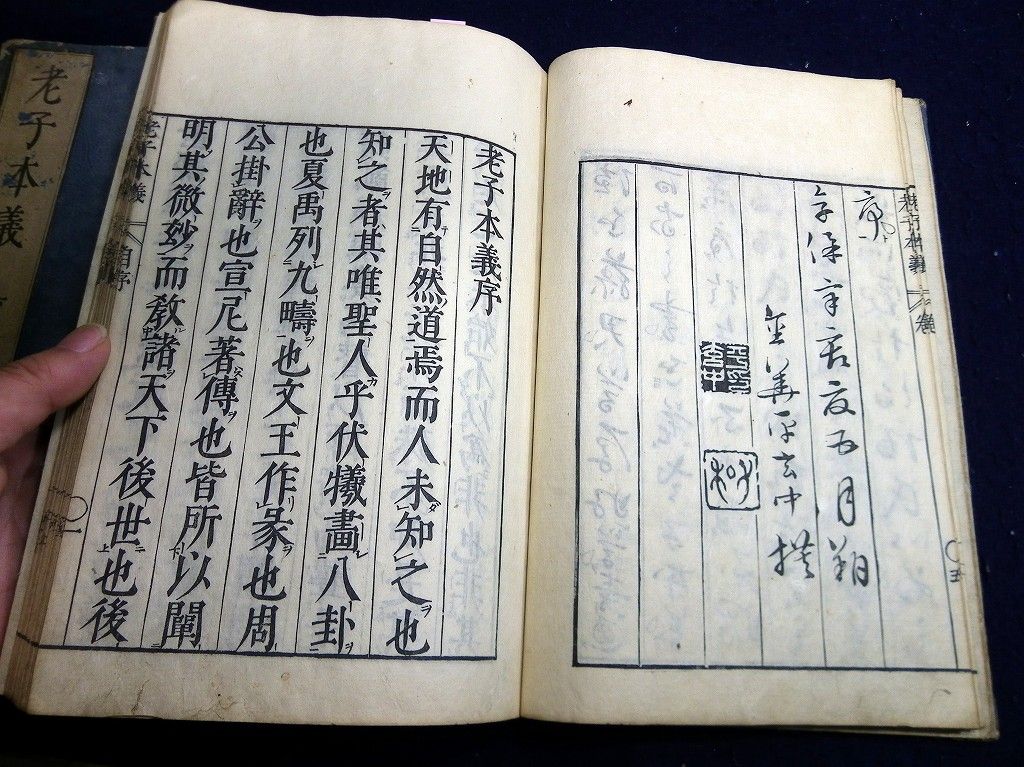 老子本義
序
享保辛亥夏五月朔
金華平玄中撰
平印玄中
子和
老子本義序
天地有自然道焉而人未知之也
知之者其唯聖人乎伏犧畫八卦
也夏禹列九疇也文王作彖也周
公掛辭也宣尼著傳也皆所以闡
明其微妙而敎諸天下後世也後
老子本義
自序
老子本義